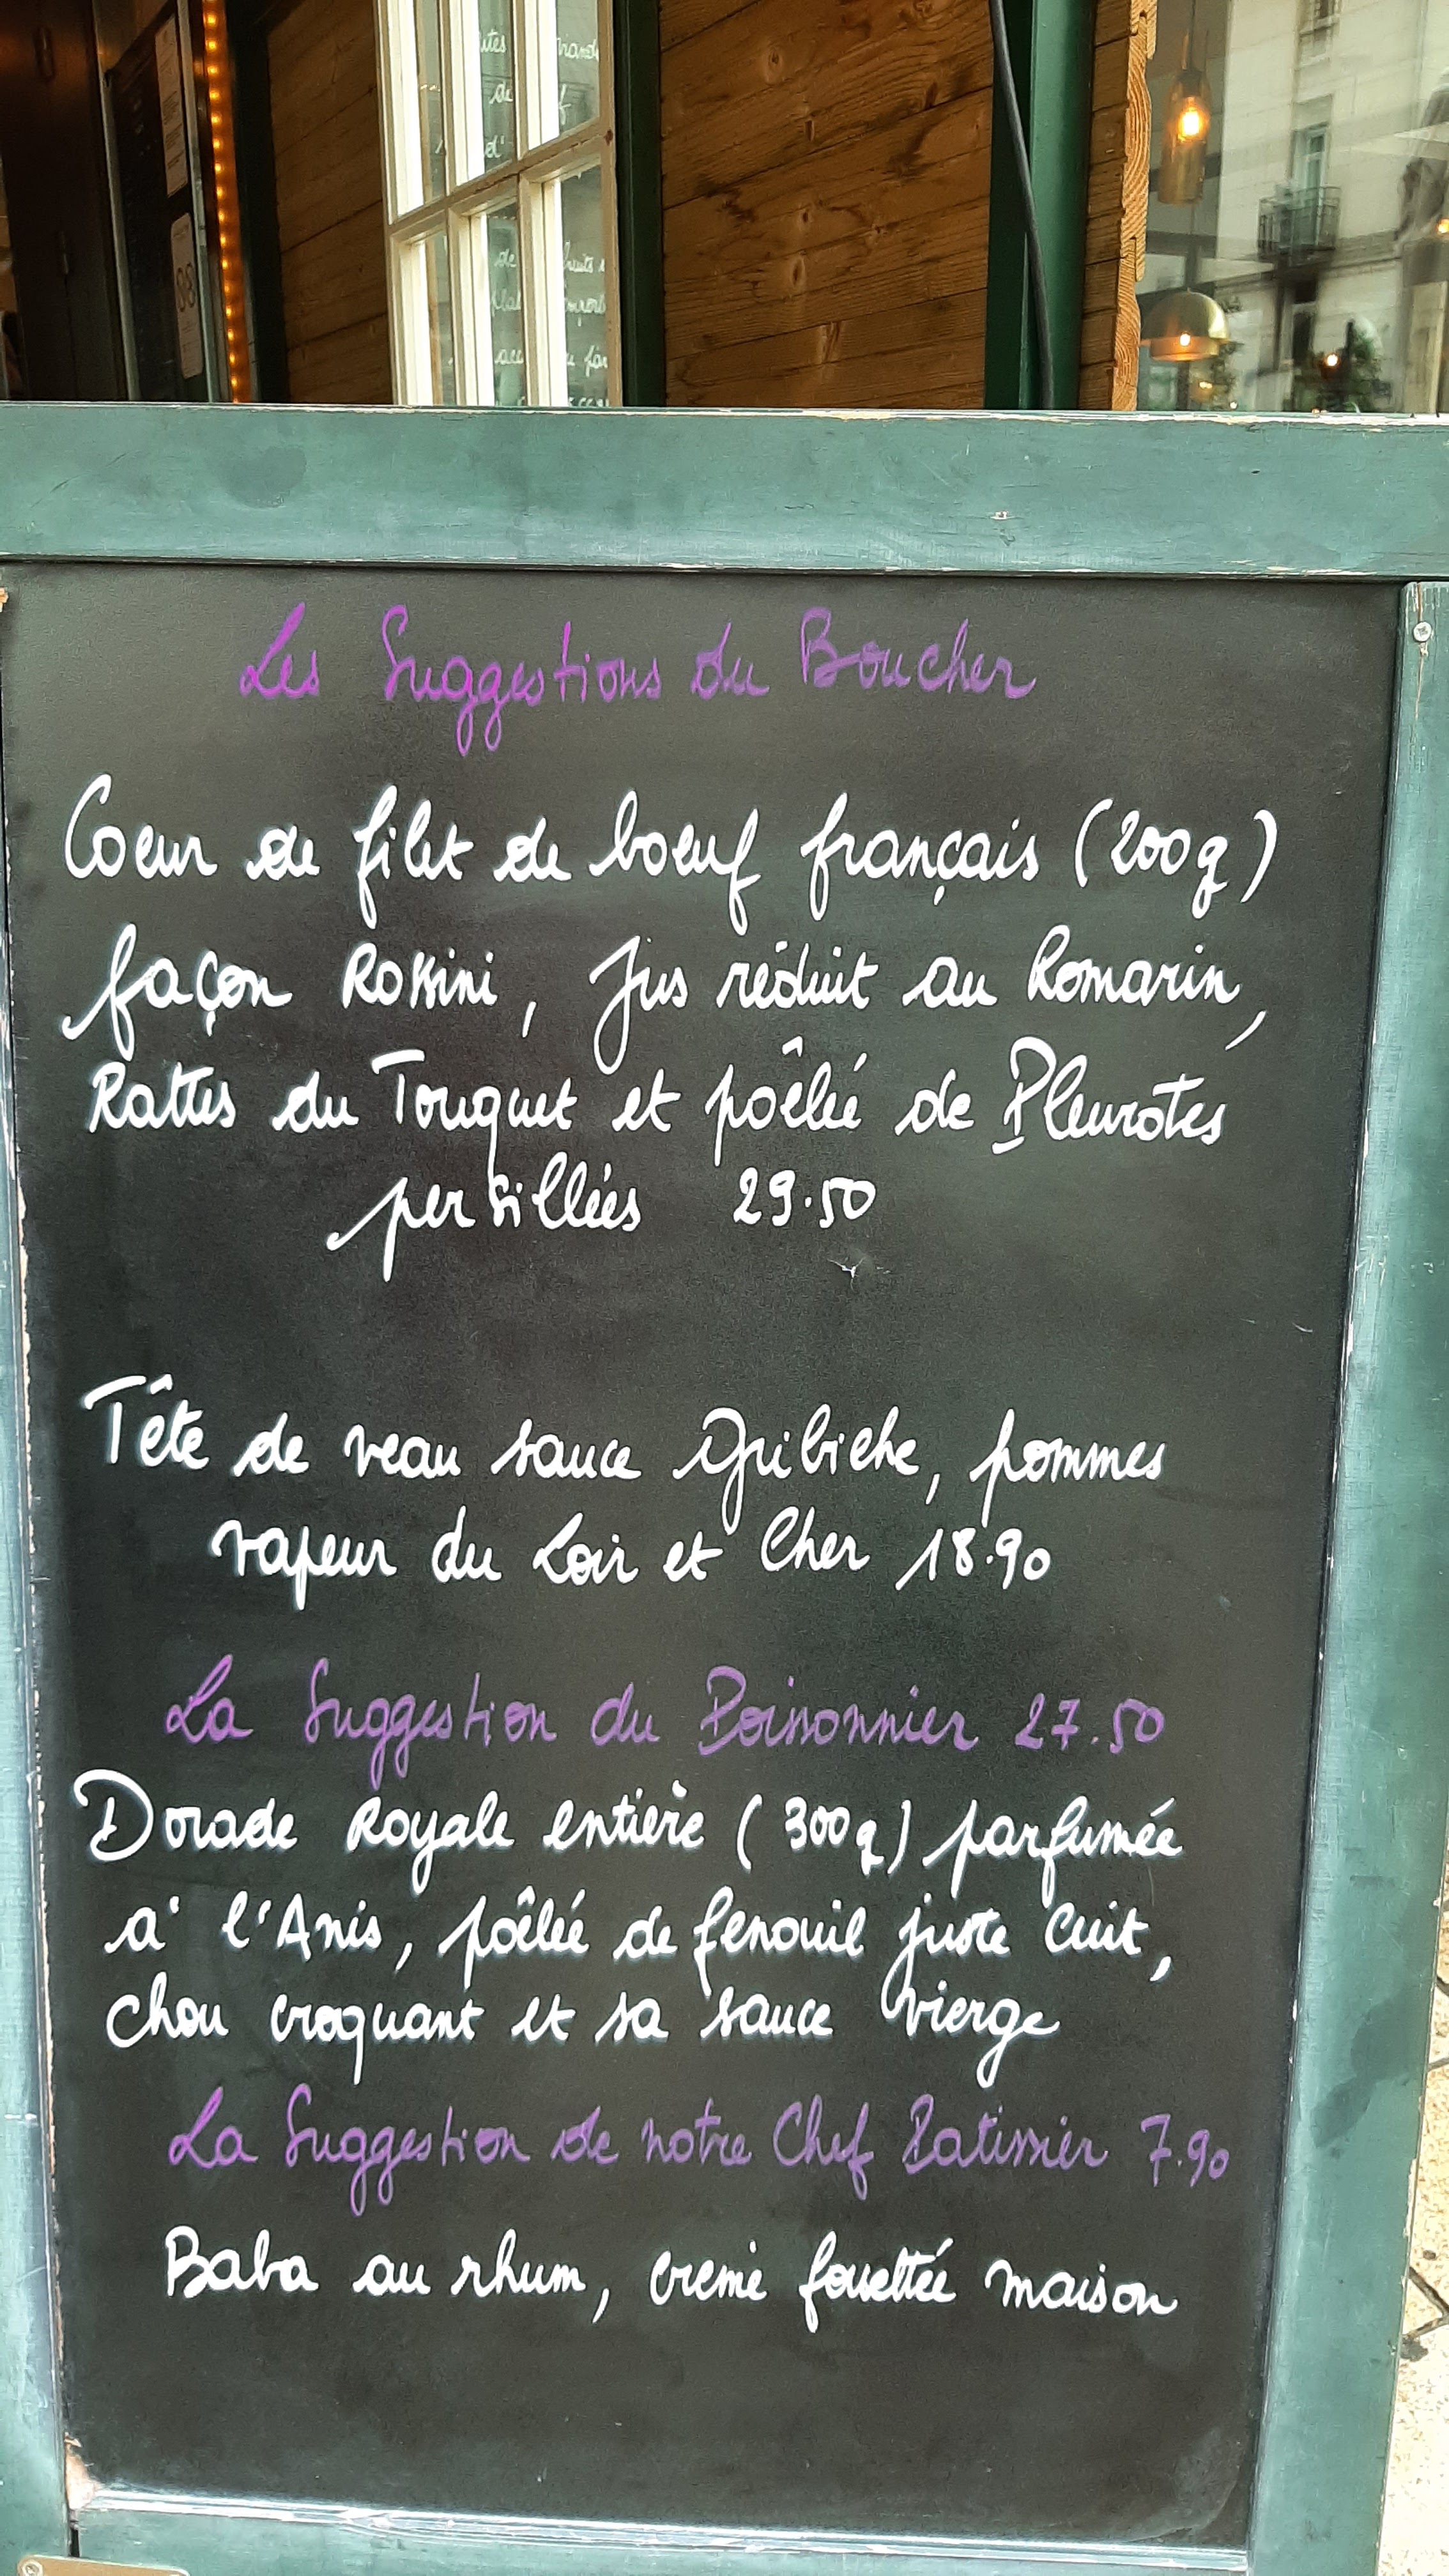 Les Suggestions du Boucher
Coeur de filet de boeuf français (200g)
façon Rossini, Jus réduit au Romarin,
Rattes du Touquet et poêlée de Pleurotes
persillées 29.50
Tête de veau sauce Gribiche, pommes
vapeur du Loir et Cher 18.90
La Suggestion du Poissonnier 27.50
Dorade Royale entière (300g) parfumée
à l'Anis, pôêlée de fenouil juste cuit,
chou croquant et sa sauce vierge
La Suggestion de notre Chef Patissier 7.90
Baba au rhum, crème fouettée maison